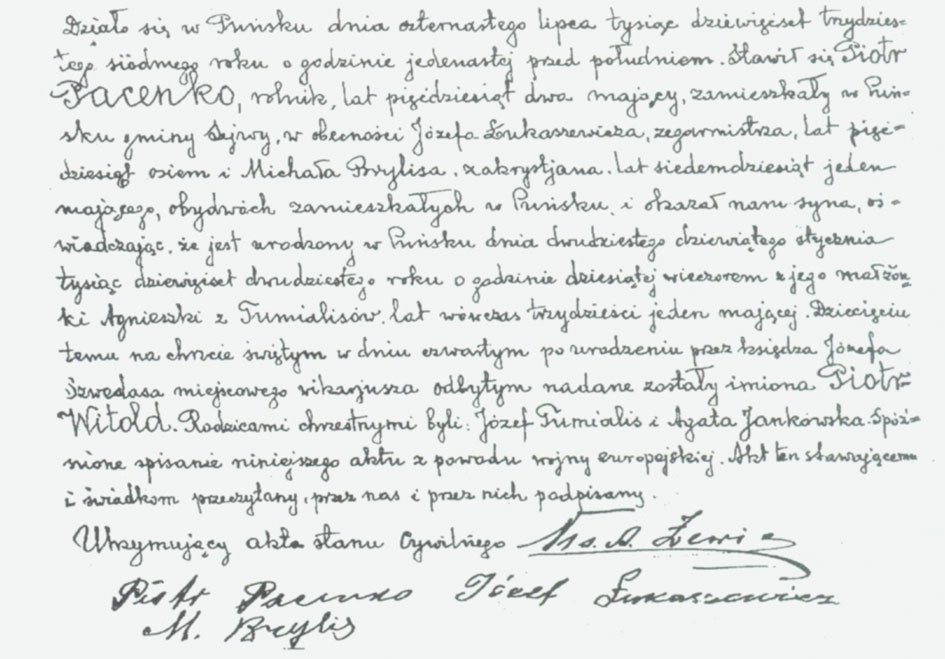 Działo się w Puńsku dnia czternastego lipca tysiąc dziewięćset trzydzies-
tego siódmego roku o godzinie jedenastej przed południem. Stawił się Piotr
Pacenko, rolnik, lat pięćdziesiąt dwa mający, zamieszkały w Puń-
sku gminy Sejwy, w obecności Józefa Łukaszewicza, zegarmistrza, lat pięć-
dziesiąt osiem i Michała Brylisa, zakrystjana, lat siedemdziesiąt jeden
mającego, obydwóch zamieszkałych w Puńsku, i okazał nam syna, oś-
wiadczając, że jest urodzony w Puńsku dnia dwudziestego dziewiątego stycznia
tysiąc dziewięćset dwudziestego roku o godzinie dziesiątej wieczorem z jego małżon-
ki Agnieszki z Tumialisów, lat wówczas trzydzieści jeden mającej. Dziecięciu
temu na chrzcie świętym w dniu czwartym po urodzeniu przez księdza Józefa
Szwedasa miejscowego wikarjusza odbytym nadane zostały imiona Piotr-
Witold. Rodzicami chrzestnymi byli: Józef Tumialis i Agata Jankowska. Spóź-
nione spisanie niniejszego aktu z powodu wojny europejskiej. Akt ten stawającemu
i świadkom przeczytany, przez nas i przez nich podpisany.
Utrzymujący akta stanu Cywilnego
Piotr Pacenko Józef Łukaszewicz
M. Brylis